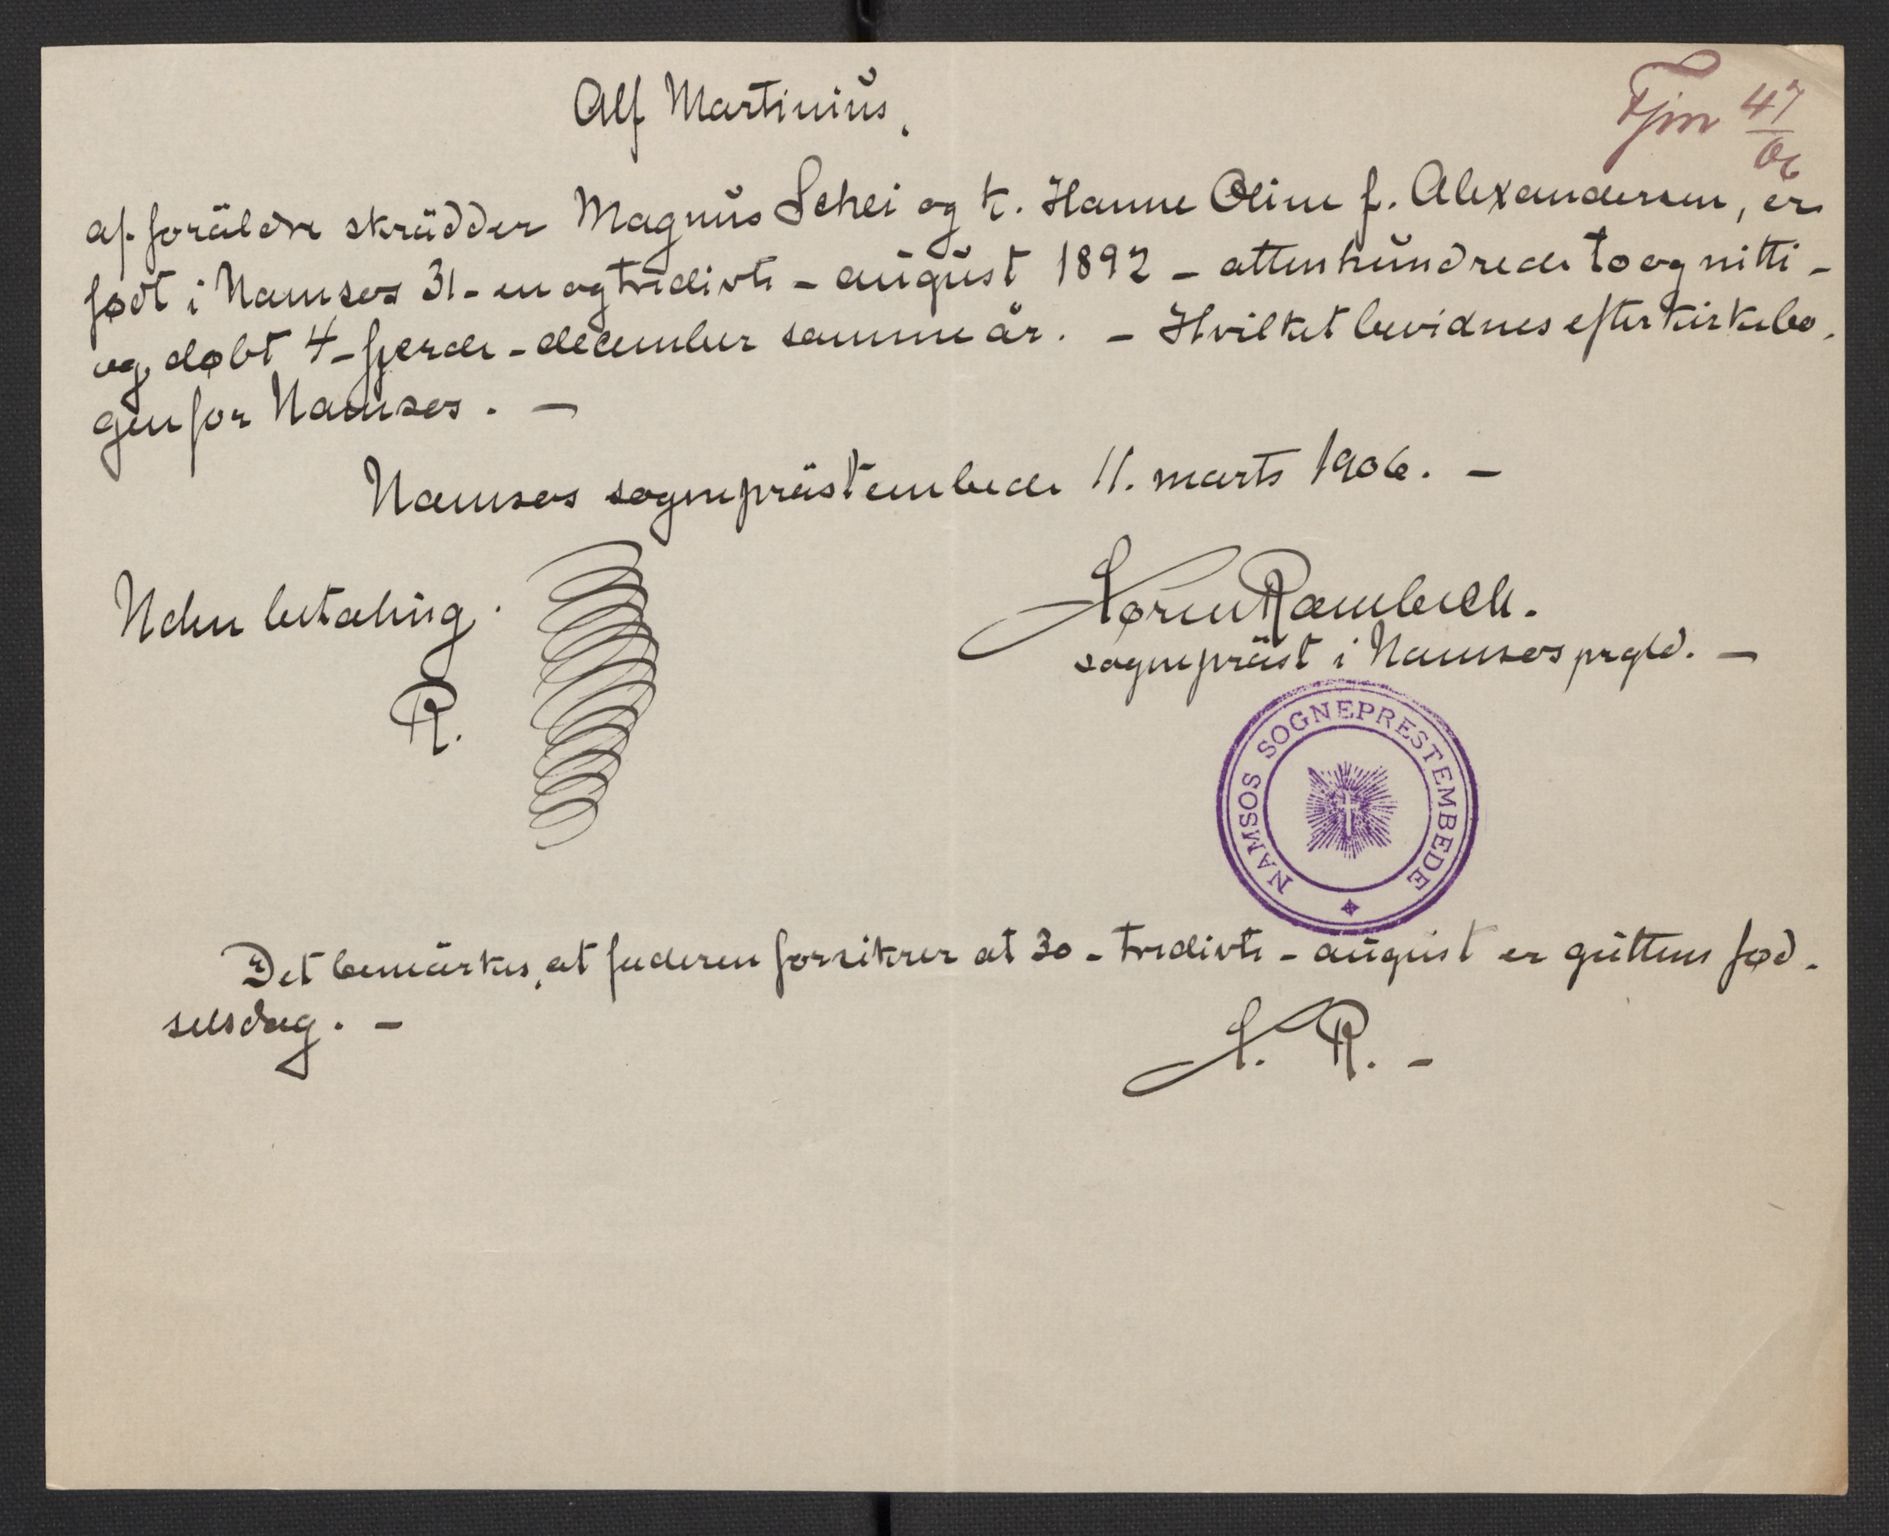 Alf Martinius.
Fjm 47/06
af foräldre skrädder Magnus Schei og k. Hanne Oline f. Alexandersen, er
født i Namsos 31 - enogtredivte - august 1892 - attenhundrede toognitti -
og døbt 4 - fjerde - december samme år. - Hvilket bevidnes efter kirkebo-
gen for Namsos. -
Namsos sogneprästembede 11. marts 1906. -
Uden betaling.
R.
Søren Rambech.
sognepräst i Namsos prgld. -
NAMSOS SOGNEPRESTEMBEDE
Det bemärkes, at faderen forsikrer at 30 - tredivte - august er guttens fød-
selsdag. -
S. R. -